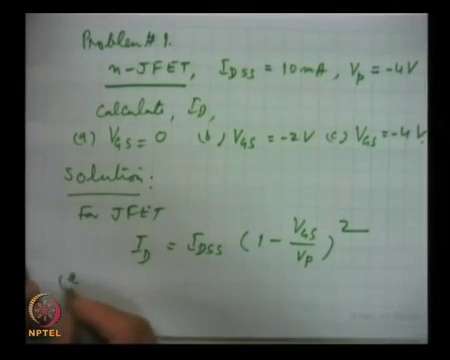 Problem # 1.
n-JFET, I_DSS = 10 mA, V_P = -4V
Calculate, I_D,
(a) V_GS = 0 (b) V_GS = -2V (c) V_GS = -4V.
Solution:
For JFET
I_D = I_DSS (1 - V_GS/V_P)^2
(a
NPTEL